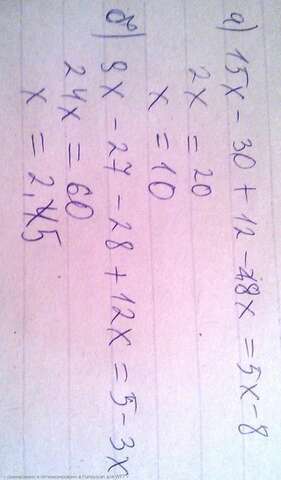 а) 15x - 30 + 12 - 18x = 5x - 8
2x = 20
x = 10
б) 9x - 27 - 28 + 12x = 5 - 3x
24x = 60
x = 2,45